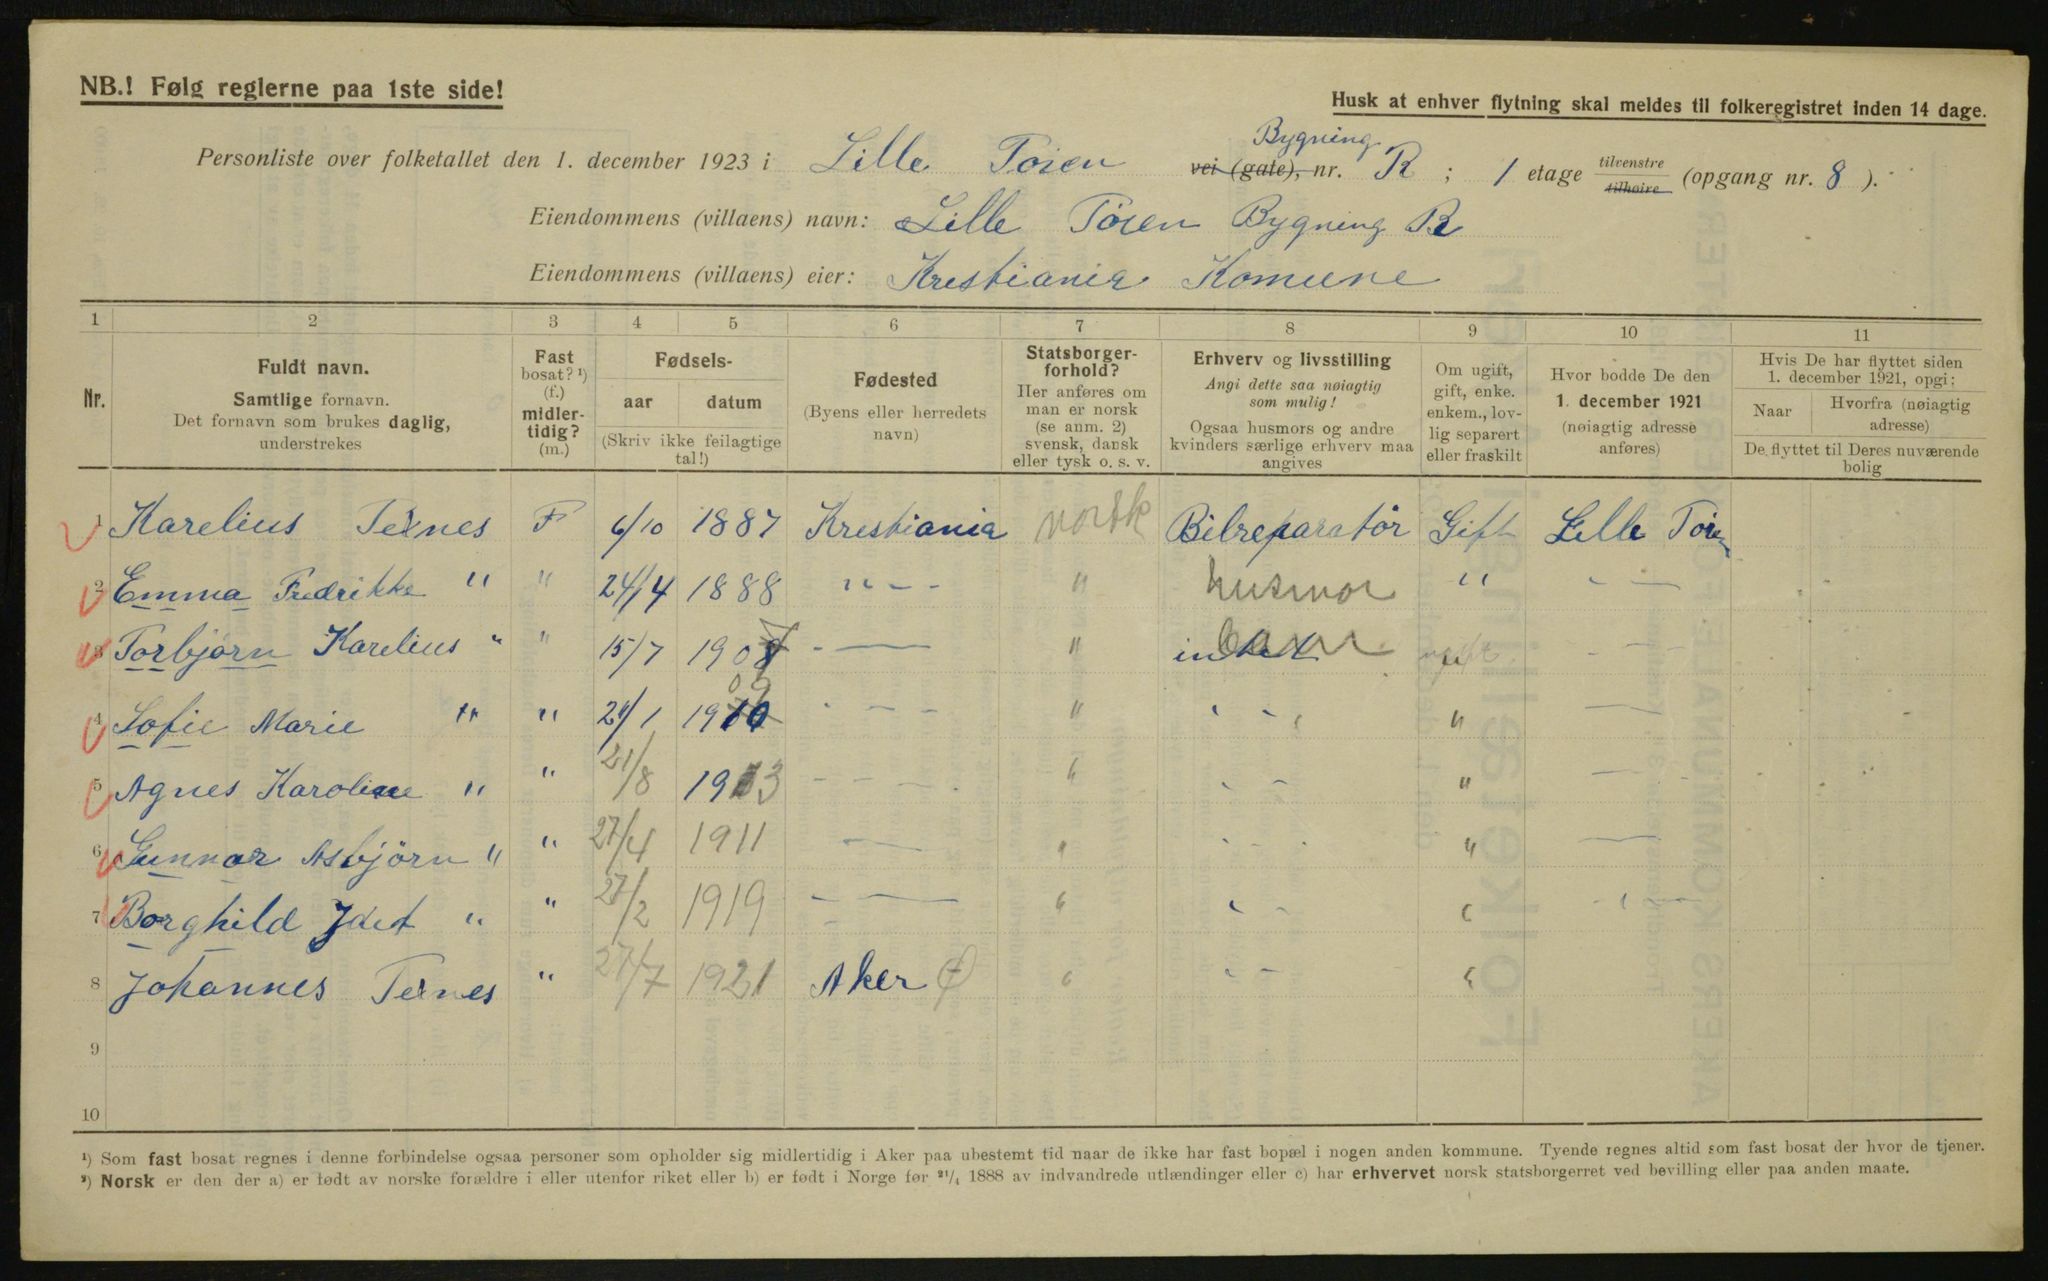 NB.! Følg reglerne paa 1ste side!
Husk at enhver flytning skal meldes til folkeregistret inden 14 dage.
Personliste over folketallet den 1. december 1923 i Lille Toien Bygning vei (gate), nr. R ; 1 etage tilvenstre tilhøire (opgang nr. 8 ).
Eiendommens (villaens) navn: Lille Töien Bygning R
Eiendommens (villaens) eier: Krestiania Komune
1 2 3 4 5 6 7 8 9 10 11
Nr.
Fuldt navn.
Samtlige fornavn.
Det fornavn som brukes daglig, understrekes
Fast bosat? ¹) (f.) midlertidig? (m.)
Fødsels-
aar datum
(Skriv ikke feilagtige tal!)
Fødested
(Byens eller herredets navn)
Statsborgerforhold?
Her anføres om man er norsk (se anm. 2) svensk, dansk eller tysk o. s. v.
Erhverv og livsstilling
Angi dette saa nøiagtig som mulig!
Ogsaa husmors og andre kvinders særlige erhverv maa angives
Om ugift, gift, enke. enkem., lovlig separert eller fraskilt
Hvor bodde De den 1. december 1921 (nøiagtig adresse anføres)
Hvis De har flyttet siden 1. december 1921, opgi:
Naar Hvorfra (nøiagtig adresse)
De flyttet til Deres nuværende bolig
1 Karelius Teknes F 6/10 1887 Krestiania norsk Bilreparatör Gift Lille Toien
2 Emma Fredrikke " " 24/4 1888 " - - " husmor " - —
3 Torbjørn Karelius " " 15/7 1908 - — " barn ugift - —
4 Sofie Marie " " 21/1 1910 09 - - - " " - " —
5 Agnes Karoline " " 21/8 1913 - - - " " - " —
6 Gunnar Asbjörn " " 27/4 1911 — " - - " —
7 Borghild " " 27/2 1919 - — " " - " - —
8 Johannes Teknes " 27/7 1921 Aker " " - "
9
10
¹) Som fast bosat regnes i denne forbindelse ogsaa personer som opholder sig midlertidig i Aker paa ubestemt tid naar de ikke har fast bopæl i nogen anden kommune. Tyende regnes altid som fast bosat der hvor de tjener.
²) Norsk er den der a) er født av norske forældre i eller utenfor riket eller b) er født i Norge før 21/4 1888 av indvandrede utlændinger eller c) har erhvervet norsk statsborgerret ved bevilling eller paa anden maate.